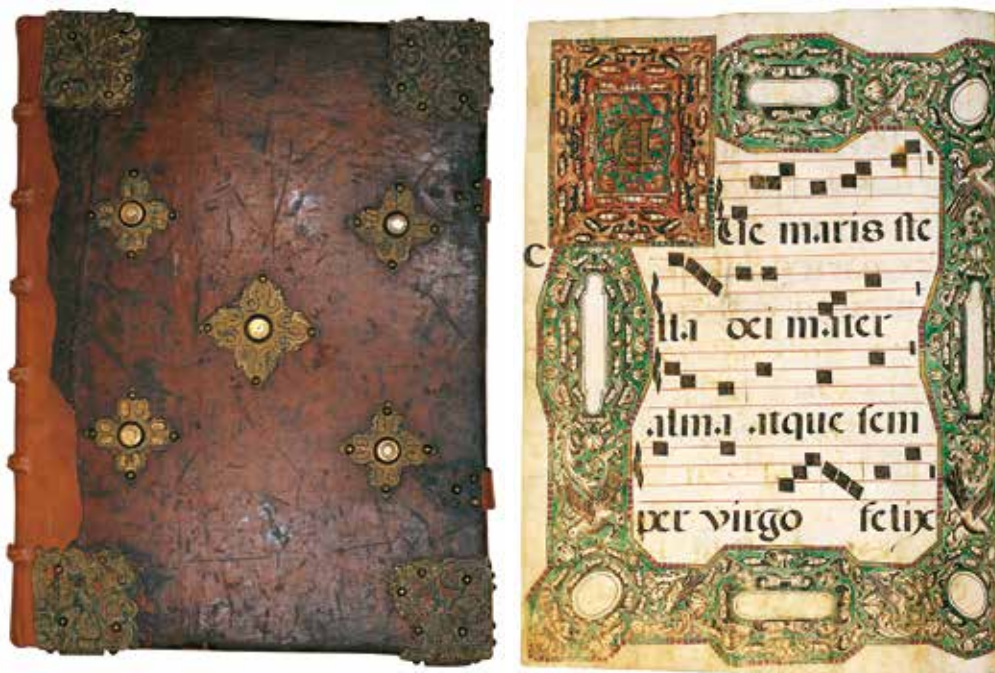 Ave maris ste
C
lla dei mater
alma atque sem
per virgo felix